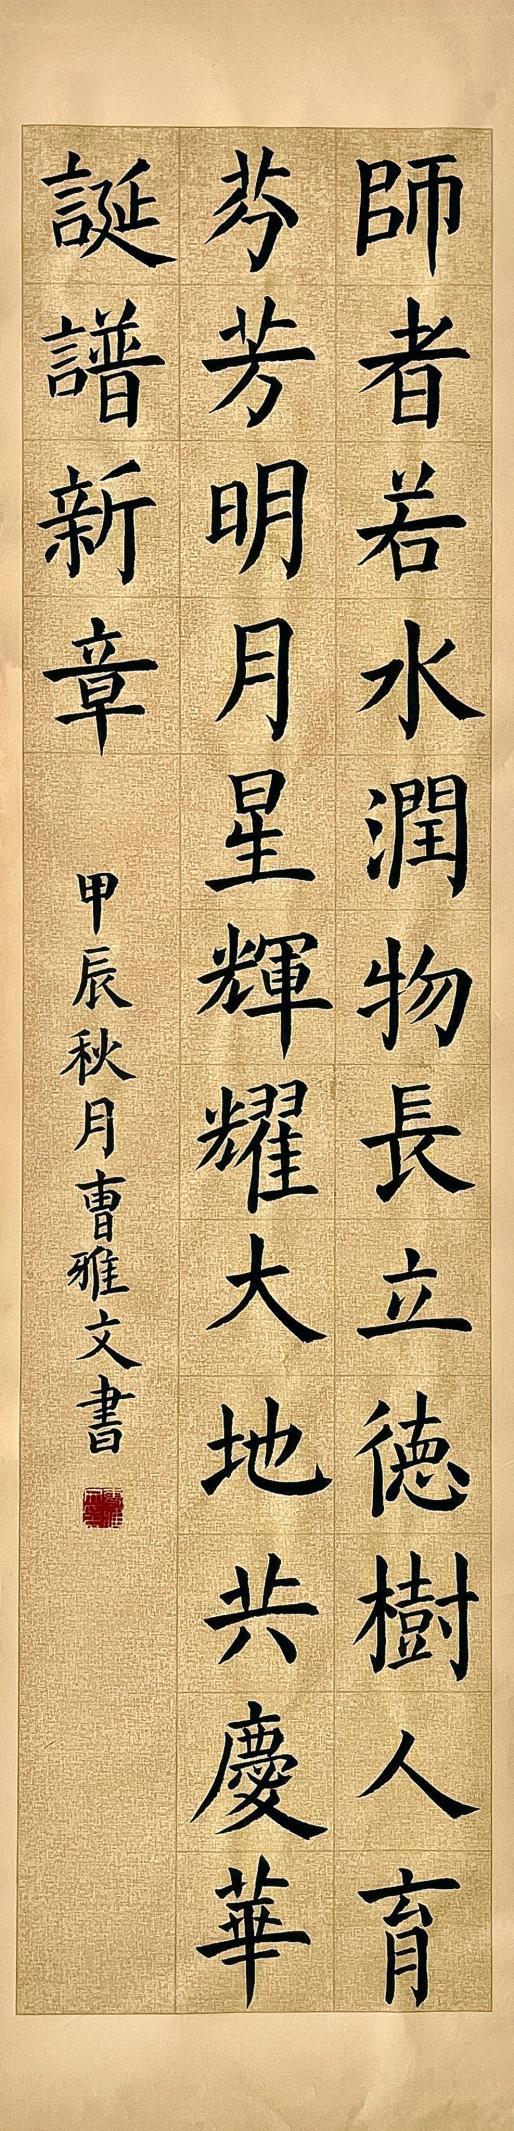 師者若水潤物長立徳樹人育
芬芳明月星輝耀大地共慶華
誕譜新章
甲辰秋月曹雅文書